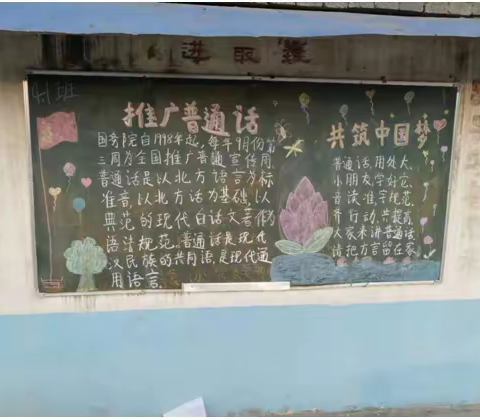 进取
41班
推广普通话
国务院自1998年起,每年9月份第
三周为全国推广普通宣传周.
普通话是以北方语言为标
准音,以北方话为基础,以
典范的现代白话文著作为
语法规范.普通话是现代
汉民族的共同语,是现代通
用语言.
共筑中国梦
普通话,用处大,
小朋友,学好它.
音读准,字规范,
齐行动,共提高.
大家来讲普通话
请把方言留在家